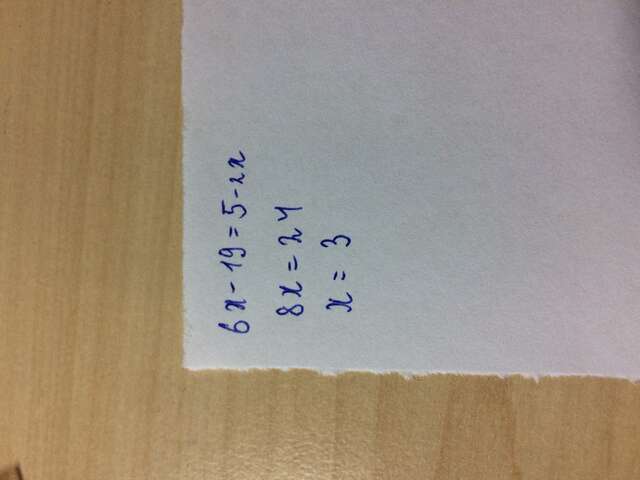 6x-19=5-2x
8x=24
x=3